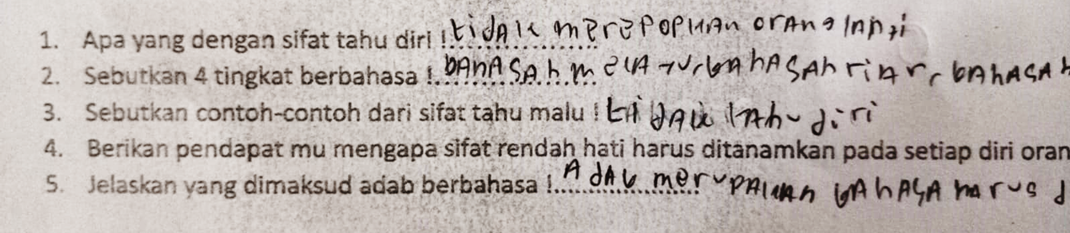 1. Apa yang dengan sifat tahu diri ! tidak merepopkan orang
2. Sebutkan 4 tingkat berbahasa ! bahasah
3. Sebutkan contoh-contoh dari sifat tahu malu ! tidak tahu diri
4. Berikan pendapat mu mengapa sifat rendah hati harus ditanamkan pada setiap diri oran
5. Jelaskan yang dimaksud adab berbahasa !.... Adab merupakan bahasa harus d